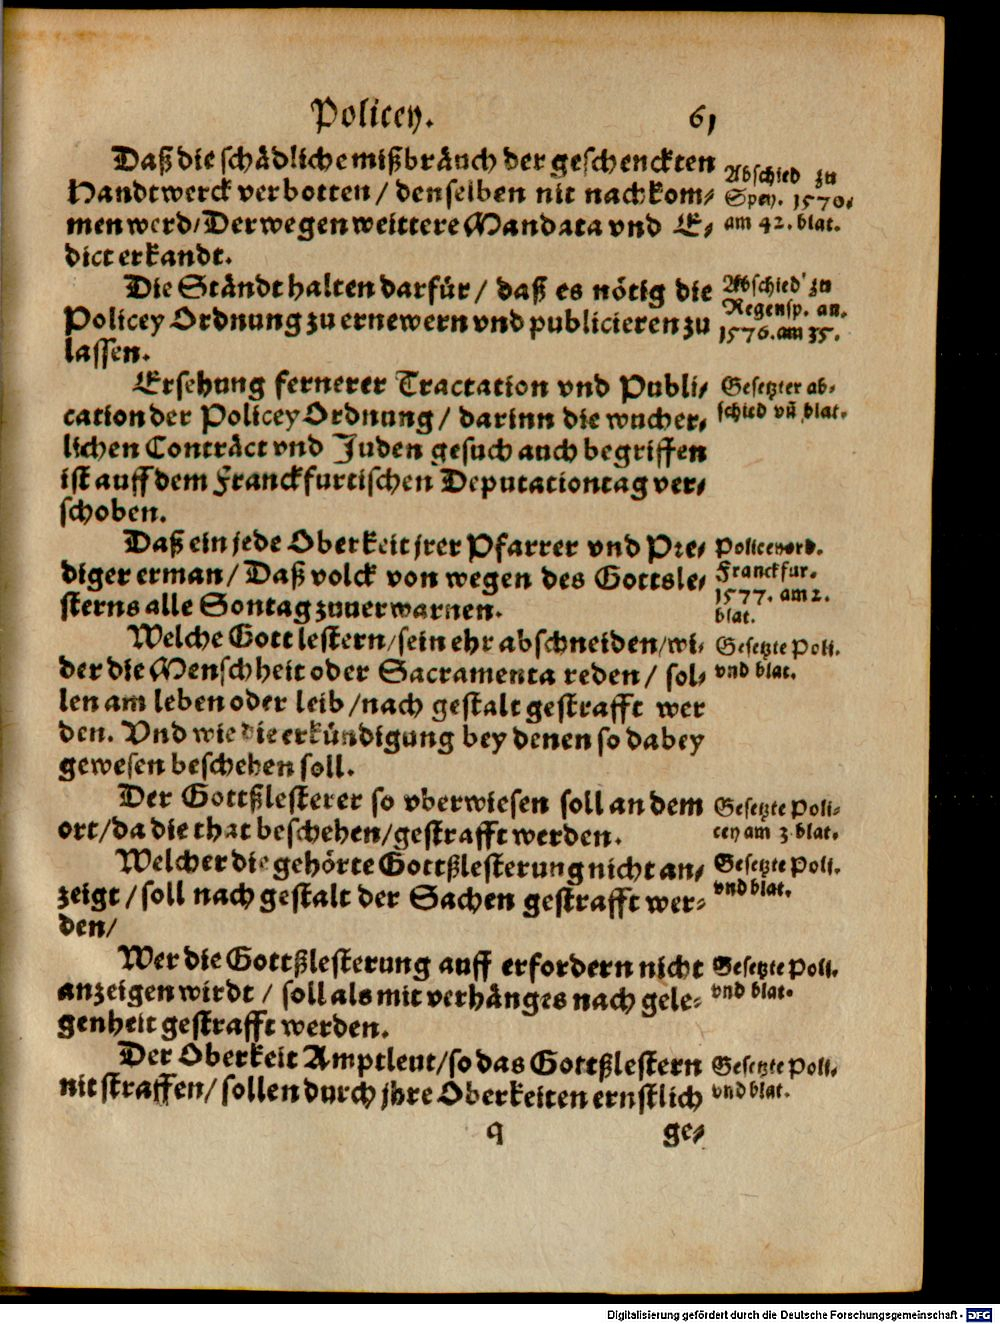 Policey. 61
Daß die schädliche mißbräuch der geschenckten
Handtwerck verbotten / denselben nit nachkom⸗
men werd/Derwegen weittere Mandata vnd E⸗
dict erkandt.
Abschied zu
Spey. 1570.
am 42. blat.
Die Ständt halten darfür / daß es nötig die
Policey Ordnung zu ernewern vnd publicieren zu
lassen.
Abschied zu
Regensp. an.
1576. am 35.
Ersehung fernerer Tractation vnd Publi⸗
cation der Policey Ordnung / darinn die wucher⸗
lichen Conträct vnd Juden gesuch auch begriffen
ist auff dem Franckfurtischen Deputationtag ver⸗
schoben.
Gesetzter ab⸗
schied vñ blat.
Daß ein jede Oberkeit jrer Pfarrer vnd Pre⸗
diger erman / Daß volck von wegen des Gottsle⸗
sterns alle Sontag zuuerwarnen.
Policeyord.
Franckfur.
1577. am 2.
blat.
Welche Gott lestern/sein ehr abschneiden/wi⸗
der die Menschheit oder Sacramenta reden / sol⸗
len am leben oder leib /nach gestalt gestrafft wer
den. Vnd wie die erkündigung bey denen so dabey
gewesen beschehen soll.
Gesetzte Poli.
vnd blat.
Der Gottßlesterer so vberwiesen soll an dem
ort/da die that beschehen/gestrafft werden.
Gesetzte Poli⸗
cey am 3 blat.
Welcher die gehörte Gottßlesterung nicht an⸗
zeigt / soll nach gestalt der Sachen gestrafft wer⸗
den/
Gesetzte Poli.
vnd blat.
Wer die Gottßlesterung auff erfordern nicht
anzeigen wirdt / soll als mit verhänges nach gele⸗
genheit gestrafft werden.
Gesetzte Poli.
vnd blat.
Der Oberkeit Amptleut/so das Gottßlestern
nit straffen/ sollen durch jhre Oberkeiten ernstlich
Gesetzte Poli.
vnd blat.
q ge⸗
Digitalisierung gefördert durch die Deutsche Forschungsgemeinschaft - DFG